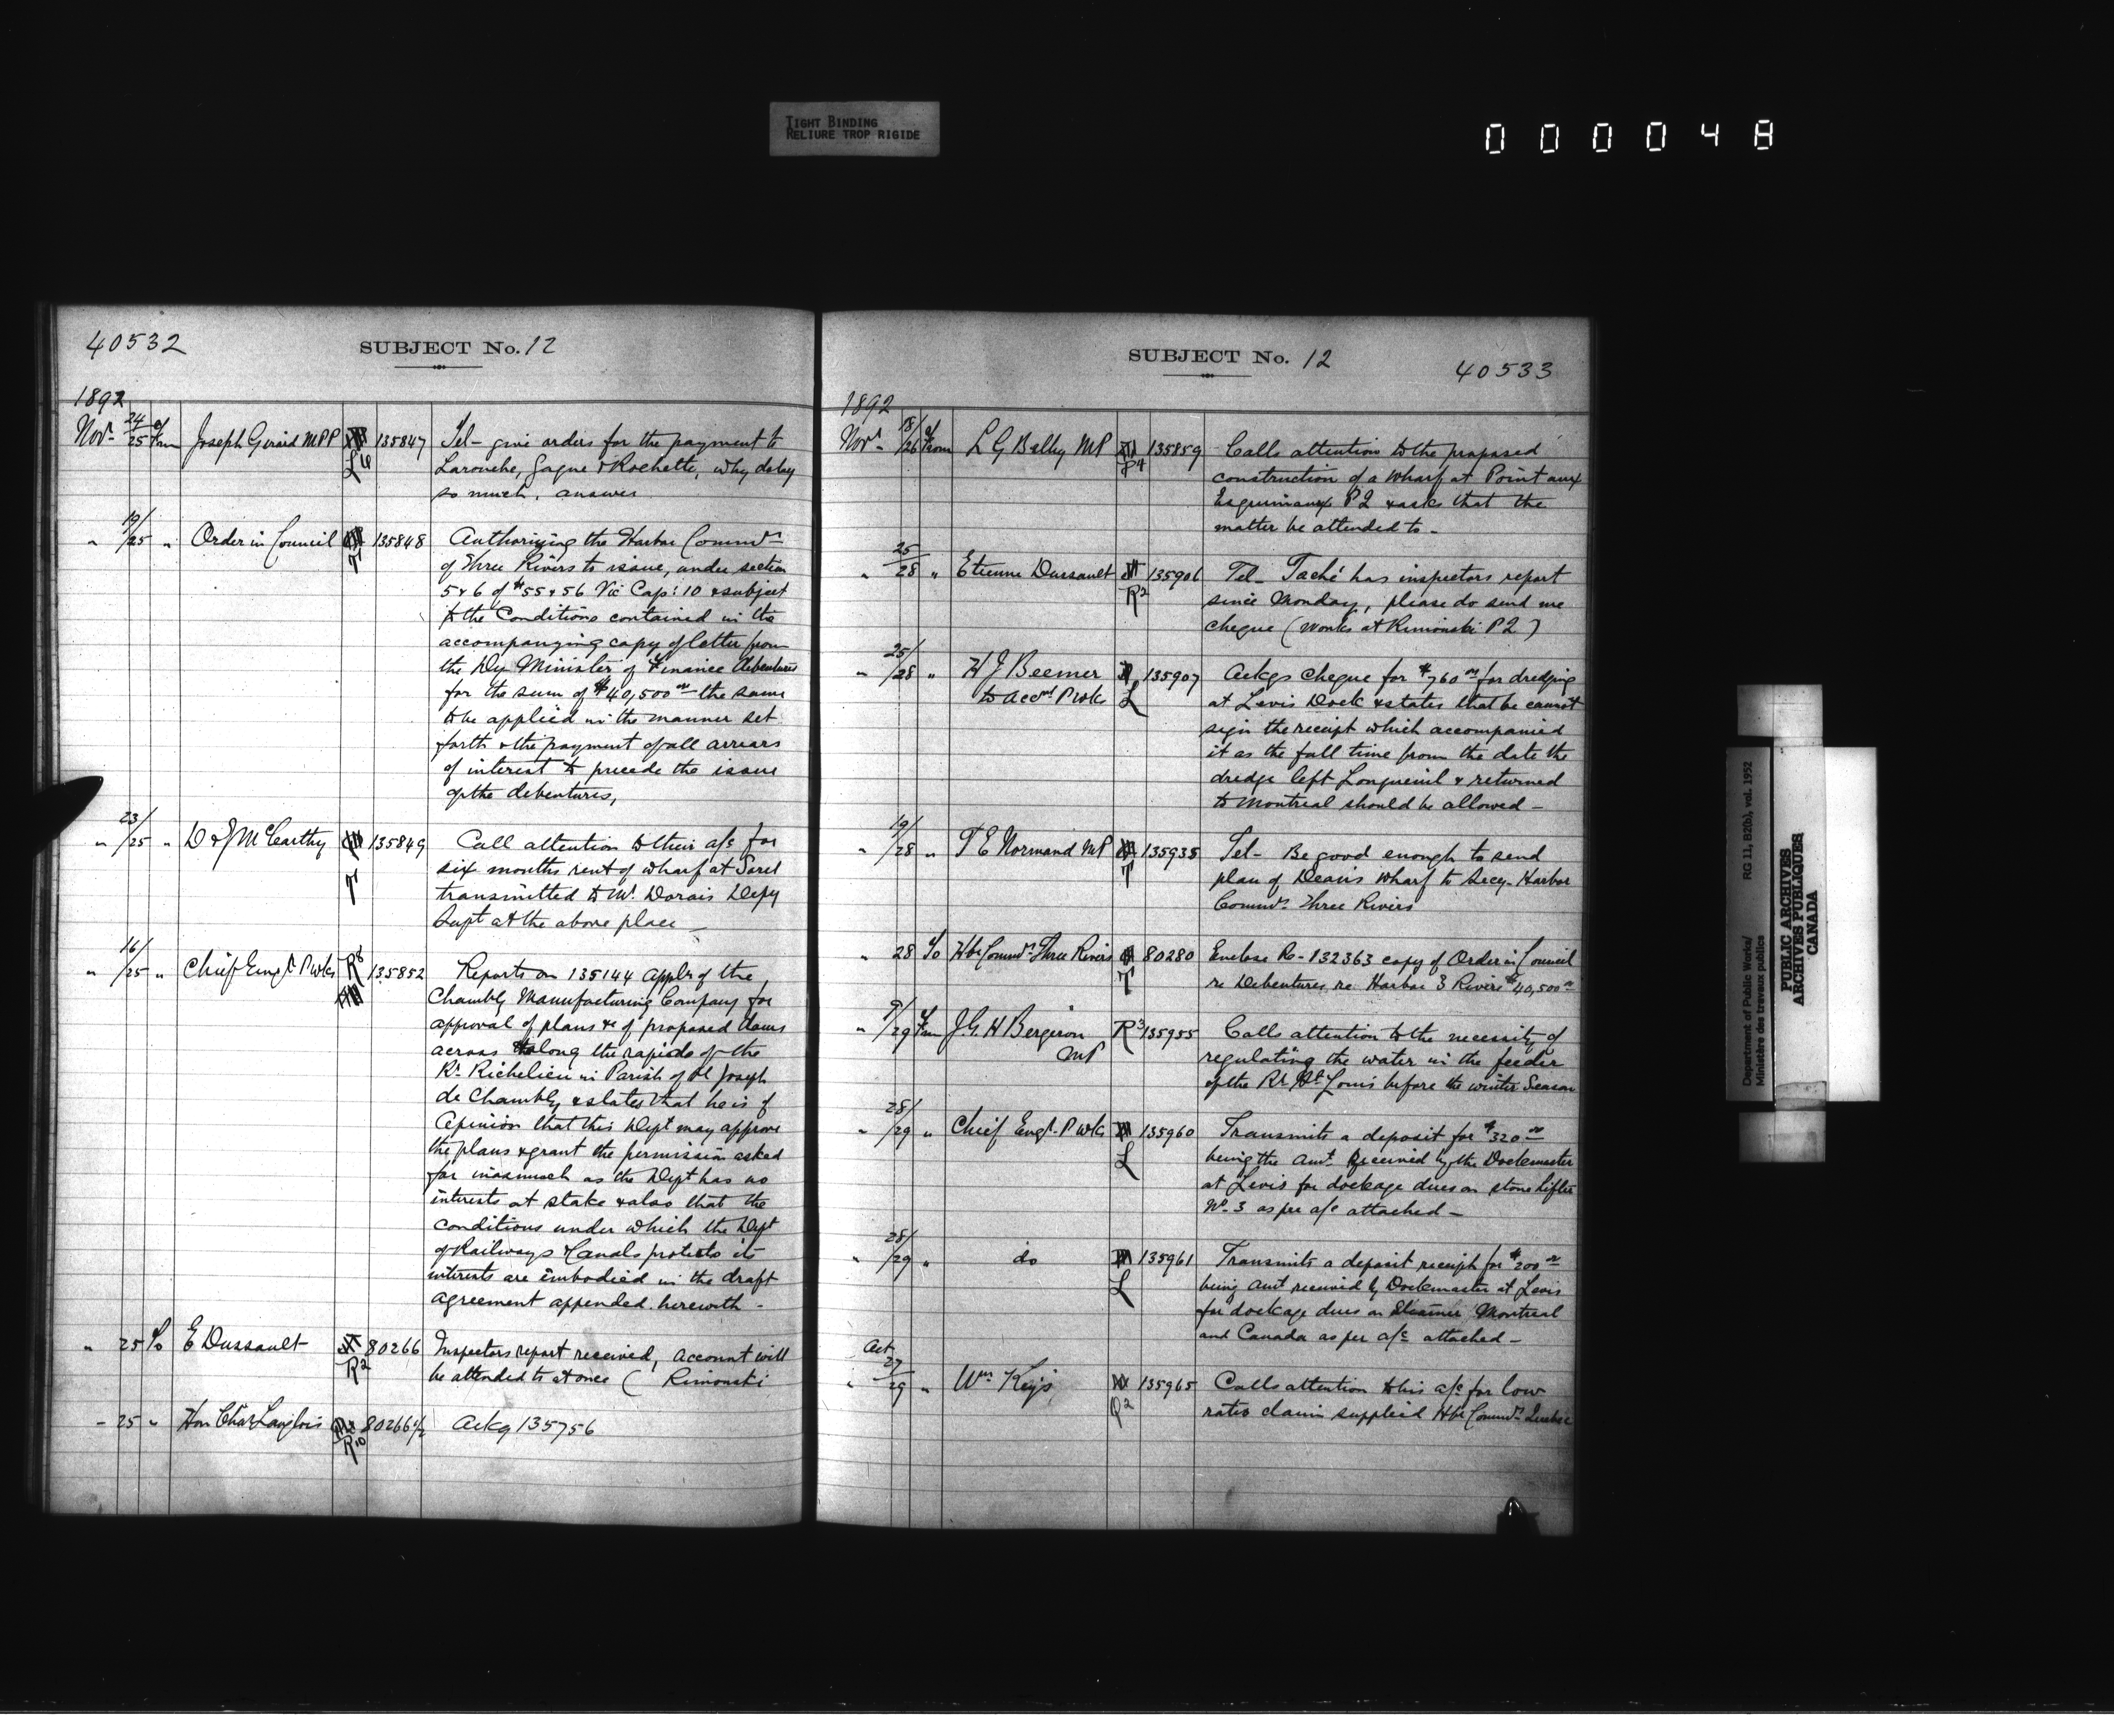 TIGHT BINDING
RELIURE TROP RIGIDE
000048
40532
SUBJECT No. 12
1892
Nov. 24/25 of From Joseph Girard MPP L6 135847 Tel- give orders for the payment to
Larouche, Gagne & Rochette, why delay
so much, answer
" 19/25 " Order in Council T 135848 Authorizing the Harbor Commrs
of Three Rivers to issue, under section
5 & 6 of 55 & 56 Vic Cap: 10 & subject
to the Conditions contained in the
accompanying copy of letter from
the Dy Minister of Finance debentures
for the sum of $40,500 00 the same
to be applied in the manner set
forth & the payment of all arrears
of interest to precede the issue
of the debentures,
" 23/25 " D & J McCarthy T 135849 Call attention to their a/c for
six months rent of wharf at Sorel
transmitted to Mr. Dorais Depy
Supt at the above place -
" 16/25 " Chief Engr. P Wks R8 135852 Reports on 135144 appln of the
Chambly Manufacturing Company for
approval of plans &c of proposed dams
across & along the rapids of the
Rr. Richelieu in Parish of St Joseph
de Chambly & states that he is of
Opinion that this Dept may approve
the plans & grant the permission asked
for inasmuch as the Dept has no
interests at stake & also that the
conditions under which the Dept
of Railways & Canals protects its
interests are embodied in the draft
agreement appended herewith -
" 25 To E Dussault R2 80266 Inspectors report received, account will
be attended to at once ( Rimouski
" 25 " Hon Chas Langlois R10 80266 1/2 Ackg 135756
SUBJECT No. 12
40533
1892
Nov. 18/26 of From L G Belley MP P4 135859 Calls attention to the proposed
construction of a wharf at Point aux
Esquimaux P2 & asks that the
matter be attended to -
" 25/28 " Etienne Dussault R2 135906 Tel- Taché has inspectors report
since Monday, please do send me
cheque (works at Rimouski P2)
" 25/28 " H J Beemer L 135907 Ackgs cheque for $760 00 for dredging
to Acct P Wks at Levis Dock & states that he cannot
sign the receipt which accompanied
it as the full time from the date the
dredge left Longueuil & returned
to Montreal should be allowed -
" 19/28 " P E Normand MP T 135935 Tel- Be good enough to send
plan of Deans wharf to Secy. Harbor
Commrs. Three Rivers
" 28 To Hbr Commrs. Three Rivers T 80280 Enclose Re- 132363 copy of Order in Council
re Debentures re Harbor 3 Rivers $40,500 00
" 9/29 of From J. G. H Bergeron R3 135955 Calls attention to the necessity of
MP regulating the water in the feeder
of the Rr St. Louis before the winter Season
" 28/29 " Chief Engr. P Wks L 135960 Transmits a deposit for $320 00
being the amt. Received by the Dockmaster
at Levis for dockage dues on stone lifter
No. 3 as per a/c attached -
" 28/29 " do L 135961 Transmits a deposit receipt for $200 00
being amt received by Dockmaster at Levis
for dockage dues on Steamer Montreal
and Canada as per a/c attached -
Oct 27/29 " Wm Keys Q2 135965 Calls attention to his a/c for low
rates claim supplied Hbr Commrs. Quebec
Department of Public Works/
Ministère des travaux publics
RG 11, B2(b), vol. 1952
PUBLIC ARCHIVES
ARCHIVES PUBLIQUES
CANADA